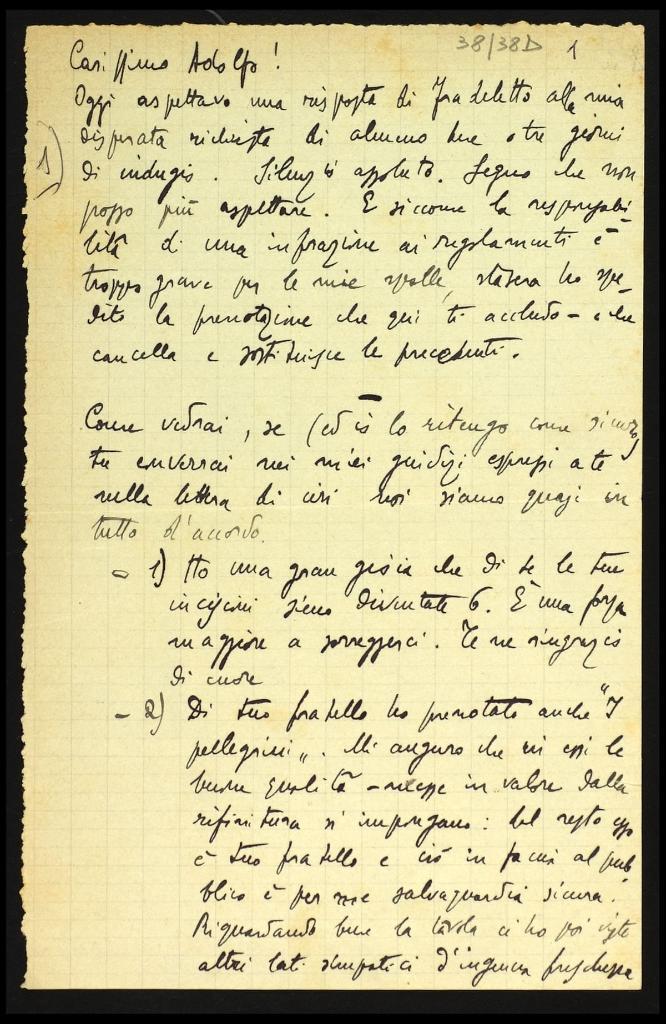 38/38D 1
Carissimo Adolfo!
Oggi aspettavo una risposta di Fradeletto alla mia
1)
disperata richiesta di almeno due o tre giorni
di indugio. Silenzio assoluto. Segno che non
posso più aspettare. E siccome la responsabi-
lità di una infrazione ai regolamenti è
troppo grave per le mie spalle, stasera ho spe-
dito la prenotazione che qui ti accludo - e che
cancella e sostituisce le precedenti.
Come vedrai, se (ed io lo ritengo come sicuro)
tu converrai nei miei giudizi espressi a te
nella lettera di ieri noi siamo quasi in
tutto d'accordo.
- 1) Ho una gran gioia che di te le tue
incisioni sieno diventate 6. È una forza
maggiore a sorreggerci. Te ne ringrazio
di cuore
- 2) Di tuo fratello ho prenotato anche "I
pellegrini". Mi auguro che in essi le
buone qualità - messe in valore dalla
rifinitura si impongano: del resto esso
è tuo fratello e ciò in faccia al pub
blico è per me salvaguardia sicura.
Riguardando bene la tavola ci ho poi visto
altri lati simpatici d'ingenua freschezza